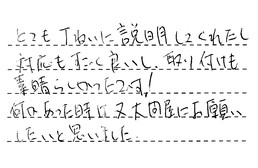 とても丁ねいに説明してくれたし
対応もすごく良いし、取り付けも
素晴らしかったです!
何かあった時に又太田屋にお願い
したいと思いました